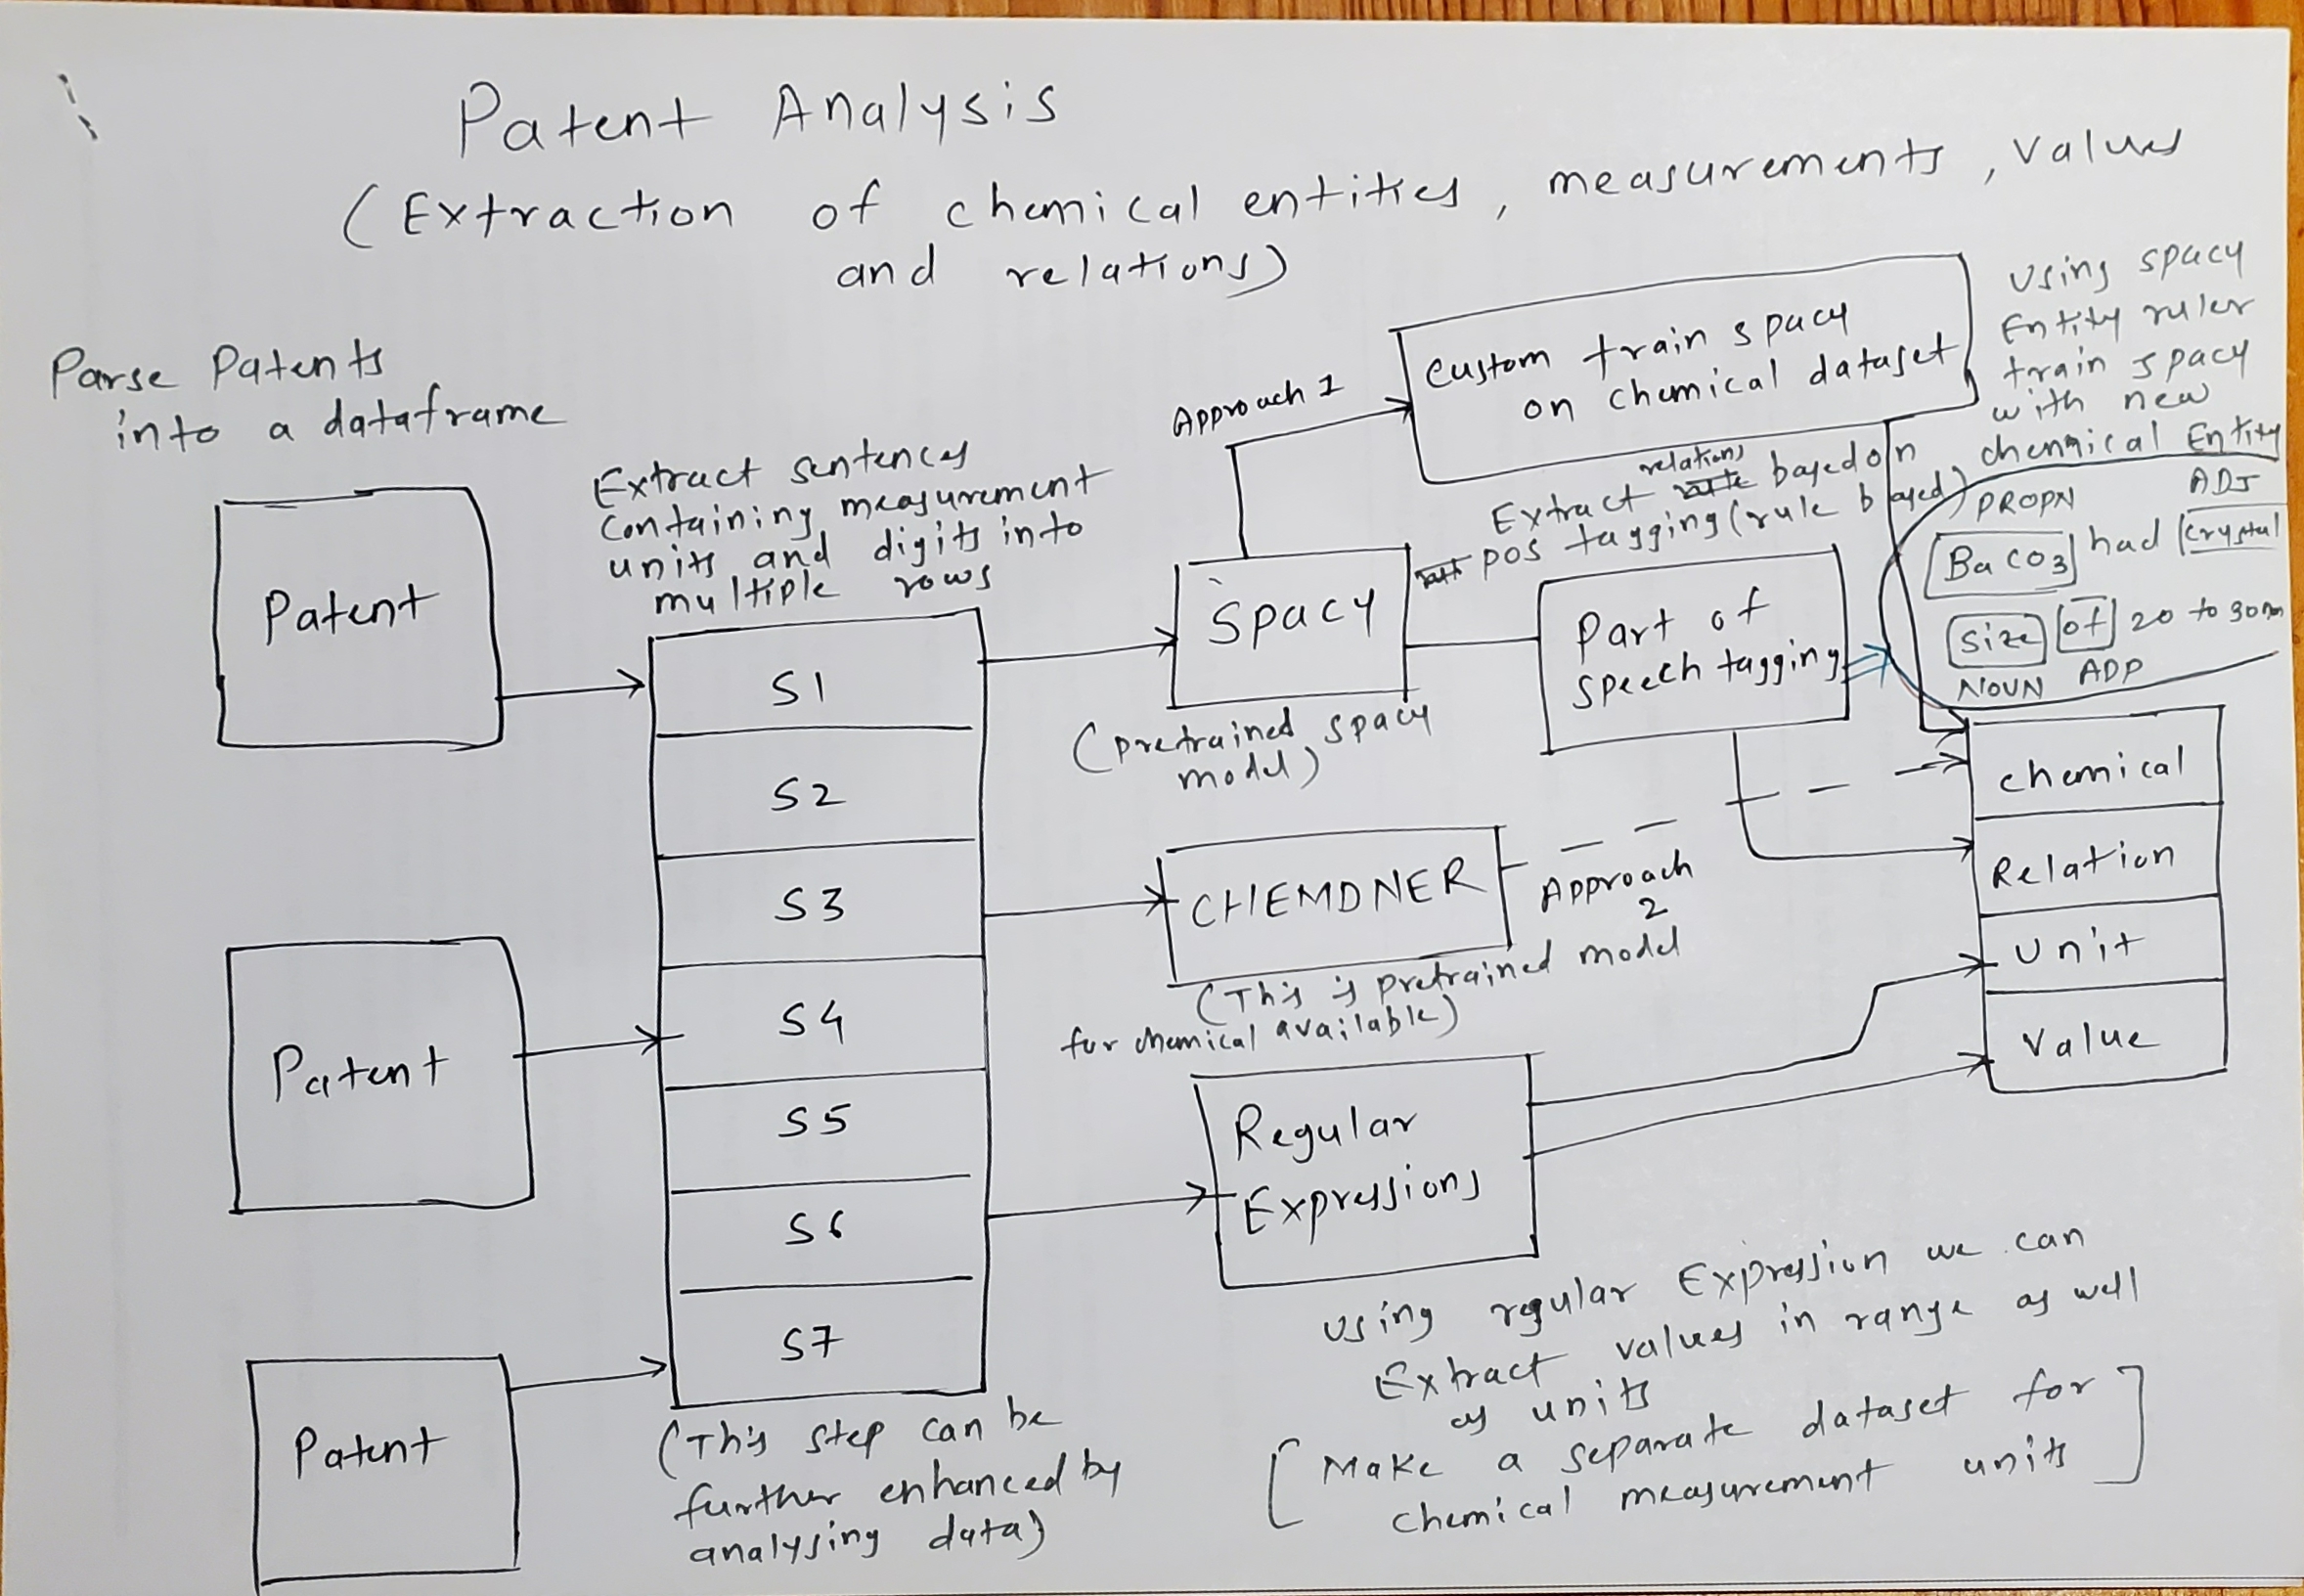 Patent Analysis
(Extraction of chemical entities, measurements, values
and relations)
Parse Patents
into a dataframe
Patent
Patent
Patent
Extract sentences
containing measurement
units and digits into
multiple rows
S1
S2
S3
S4
S5
S6
S7
(This step can be
further enhanced by
analysing data)
Approach 1
Custom train spacy
on chemical dataset
Using spacy
Entity ruler
train spacy
with new
chemical Entity
Spacy
(pretrained spacy
model)
relations
Extract based on
pos tagging (rule based)
Part of
speech tagging
PROPN
ADJ
BaCO3 had crystal
size of 20 to 30nm
NOUN ADP
CHEMDNER
Approach
2
(This is pretrained model
for chemical available)
Regular
Expressions
Chemical
Relation
Unit
Value
Using regular Expression we can
Extract values in range as well
as units
[Make a separate dataset for
chemical measurement units]